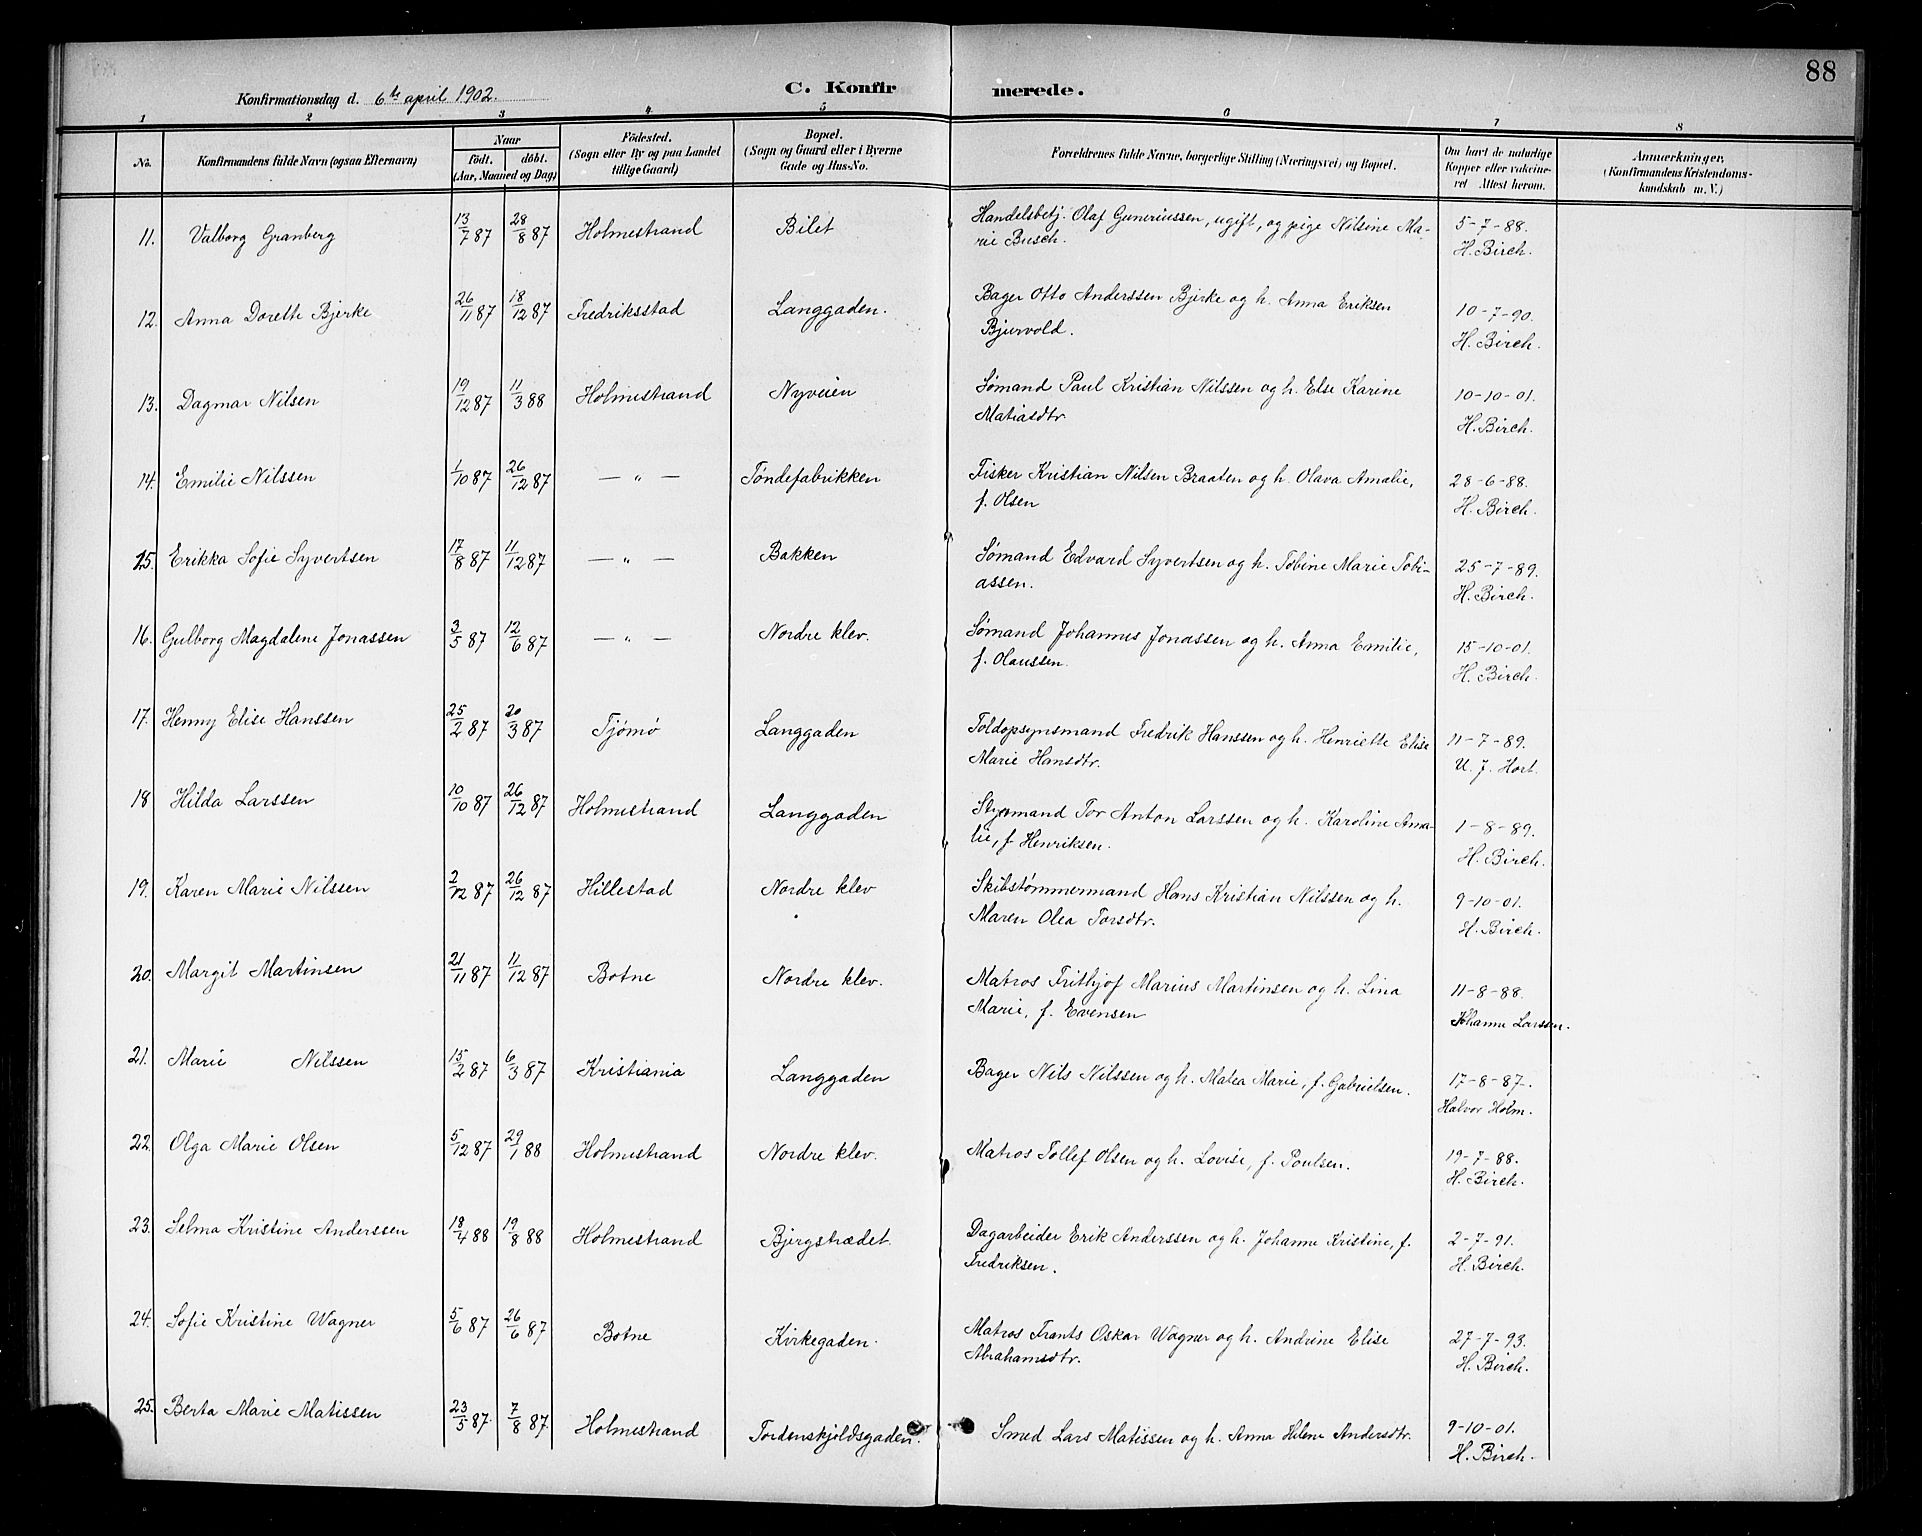 88
Konfirmationsdag d. 6te april 1902. C. Konfirmerede.
1 2 3 4 5 6 7 8
No. Konfirmandens fulde Navn (ogsaa Efternavn) Naar Födested. Bopæl. Forældrenes fulde Navne, borgerlige Stilling (Næringsvei) og Bopæl. Om havt de naturlige Anmærkninger,
födt. döbt. (Sogn eller By og paa Landet (Sogn og Gaard eller i Byerne Kopper eller vakcine- (Konfirmandens Kristendoms-
(Aar, Maaned og Dag) tillige Gaard) Gade og Hus-No. ret Attest herom. kundskab m. V.)
11. Valborg Granberg 13/7 87 28/8 87 Holmestrand Bilet Handelsbetj. Olaf Guneriussen, ugift, og pige Nilsine Ma- 5-7-88.
rie Busch. H. Birch.
12. Anna Dorette Bjerke 26/11 87 18/12 87 Fredriksstad Langgaden. Bager Otto Anderssen Bjerke og h. Anna Eriksen 10-7-90.
Bjurvold. H. Birch.
13. Dagmar Nilsen 19/12 87 11/3 88 Holmestrand Nyveien Sømand Paul Kristian Nilssen og h. Else Karine 10-10-01.
Matiasdtr H. Birch.
14. Emilie Nilssen 1/10 87 26/12 87 — " — Tøndefabrikken Fisker Kristian Nilsen Braaten og h. Olava Amalie, 28-6-88.
f. Olsen H. Birch.
15. Erikka Sofie Syvertsen 17/8 87 11/12 87 — " — Bakken Sømand Edvard Syvertsen og h. Tobine Marie Tobi- 25-7-89.
assen. H. Birch.
16. Gulborg Magdalene Jonassen 3/5 87 12/6 87 — " — Nordre klev. Sømand Johannes Jonassen og h. Anna Emilie, 15-10-01.
f. Olaussen. H. Birch.
17. Henny Elise Hanssen 25/2 87 20/3 87 Tjømø Langgaden Toldopsynsmand Fredrik Hanssen og h. Henriette Elise 11-7-89.
Marie Hansdtr. U. J. Hort.
18 Hilda Larssen 10/10 87 26/12 87 Holmestrand Langgaden Styrmand Tor Anton Larssen og h. Karoline Ama- 1-8-89.
lie, f Henriksen. H. Birch.
19. Karen Marie Nilssen 2/12 87 26/12 87 Hillestad Nordre klev Skibstømmermand Hans Kristian Nilssen og h. 9-10-01.
Maren Olea Torsdtr. H. Birch.
20. Margit Martinsen 21/11 87 11/12 87 Botne Nordre klev. Matros Frithjof Marius Martinsen og h. Lina 11-8-88.
Marie, f. Evensen Johanne Larssen.
21. Marie Nilssen 15/2 87 6/3 87 Kristiania Langgaden Bager Nils Nilssen og h. Matea Marie, f. Gabrielsen. 17-8-87.
Halvor Holm.
22. Olga Marie Olsen 5/12 87 29/1 88 Holmestrand Nordre klev. Matros Tollef Olsen og h. Lovise, f. Poulsen. 19-7-88.
H. Birch.
23. Selma Kristine Anderssen 18/4 88 19/8 88 Holmestrand Bjergstrædet. Dagarbeider Erik Anderssen og h. Johanne Kristine, f. 2-7-91.
Fredriksen. H. Birch.
24. Sofie Kristine Wagner 5/6 87 26/6 87 Botne Kirkegaden. Matros Frants Oskar Wagner og h. Andrine Elise 27-7-93.
Abrahamsdtr. H. Birch.
25. Berta Marie Matissen 23/5 87. 7/8 87. Holmestrand Tordenskjoldsgaden. Smed Lars Matissen og h. Anna Helene Andersdtr. 9-10-01.
H. Birch.